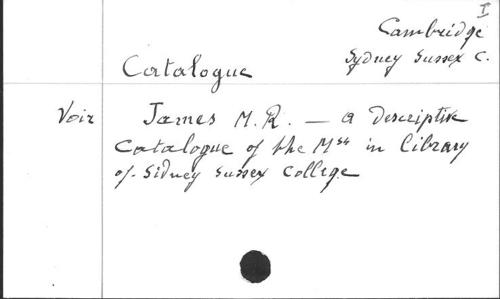 I
Cambridge
Sydney Sussex C.
Catalogue
Voir James M. R. — a Descriptive
Catalogue of the Mss in Library
of Sidney Sussex College